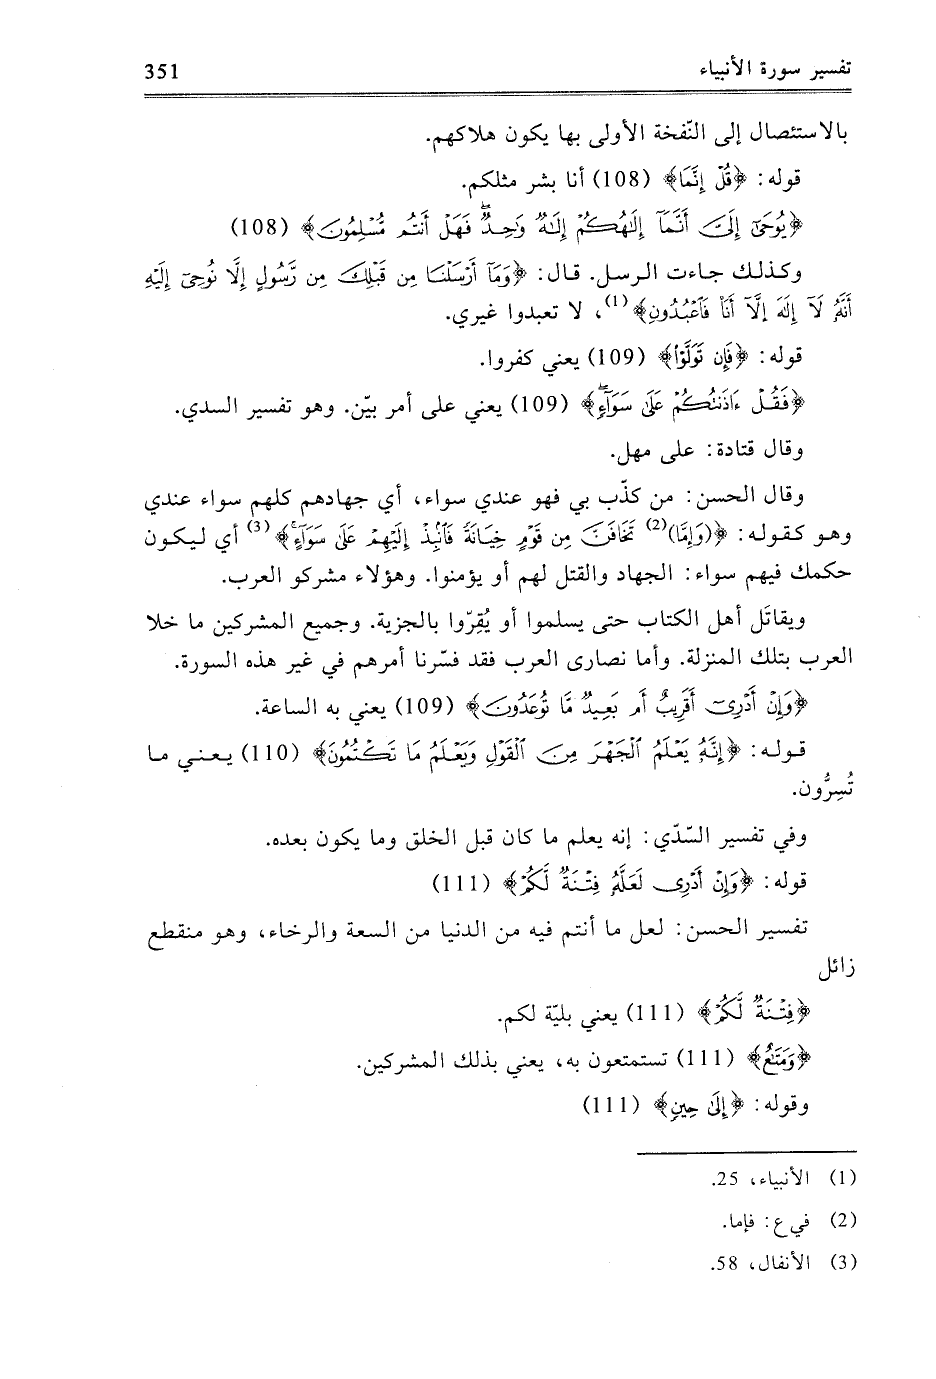 تفسير سورة الأنبياء 351
بالاستئصال إلى النّفخة الأولى بها يكون هلاكهم.
قوله: ﴿قُلْ إِنَّمَا﴾ (108) أنا بشر مثلكم.
﴿يُوحَىٰٓ إِلَىَّ أَنَّمَآ إِلَٰهُكُمْ إِلَٰهٌ وَٰحِدٌۖ فَهَلْ أَنتُم مُّسْلِمُونَ﴾ (108)
وكذلك جاءت الرسل. قال: ﴿وَمَآ أَرْسَلْنَا مِن قَبْلِكَ مِن رَّسُولٍ إِلَّا نُوحِىٓ إِلَيْهِ
أَنَّهُۥ لَآ إِلَٰهَ إِلَّآ أَنَا۠ فَٱعْبُدُونِ﴾(1)، لا تعبدوا غيري.
قوله: ﴿فَإِن تَوَلَّوْا۟﴾ (109) يعني كفروا.
﴿فَقُلْ ءَاذَنتُكُمْ عَلَىٰ سَوَآءٍۖ﴾ (109) يعني على أمر بيّن. وهو تفسير السدي.
وقال قتادة: على مهل.
وقال الحسن: من كذّب بي فهو عندي سواء، أي جهادهم كلهم سواء عندي
وهو كقوله: ﴿(وَإِمَّا)(2) تَخَافَنَّ مِن قَوْمٍ خِيَانَةً فَٱنۢبِذْ إِلَيْهِمْ عَلَىٰ سَوَآءٍۚ﴾(3) أي ليكون
حكمك فيهم سواء: الجهاد والقتل لهم أو يؤمنوا. وهؤلاء مشركو العرب.
ويقاتَل أهل الكتاب حتى يسلموا أو يُقِرّوا بالجزية. وجميع المشركين ما خلا
العرب بتلك المنزلة. وأما نصارى العرب فقد فسّرنا أمرهم في غير هذه السورة.
﴿وَإِنْ أَدْرِىٓ أَقَرِيبٌ أَم بَعِيدٌ مَّا تُوعَدُونَ﴾ (109) يعني به الساعة.
قوله: ﴿إِنَّهُۥ يَعْلَمُ ٱلْجَهْرَ مِنَ ٱلْقَوْلِ وَيَعْلَمُ مَا تَكْتُمُونَ﴾ (110) يعني ما
تُسِرُّون.
وفي تفسير السّدّي: إنه يعلم ما كان قبل الخلق وما يكون بعده.
قوله: ﴿وَإِنْ أَدْرِى لَعَلَّهُۥ فِتْنَةٌ لَّكُمْ﴾ (111)
تفسير الحسن: لعل ما أنتم فيه من الدنيا من السعة والرخاء، وهو منقطع
زائل
﴿فِتْنَةٌ لَّكُمْ﴾ (111) يعني بليّة لكم.
﴿وَمَتَٰعٌ﴾ (111) تستمتعون به، يعني بذلك المشركين.
وقوله: ﴿إِلَىٰ حِينٍ﴾ (111)
(1) الأنبياء، 25.
(2) في ع: فإما.
(3) الأنفال، 58.